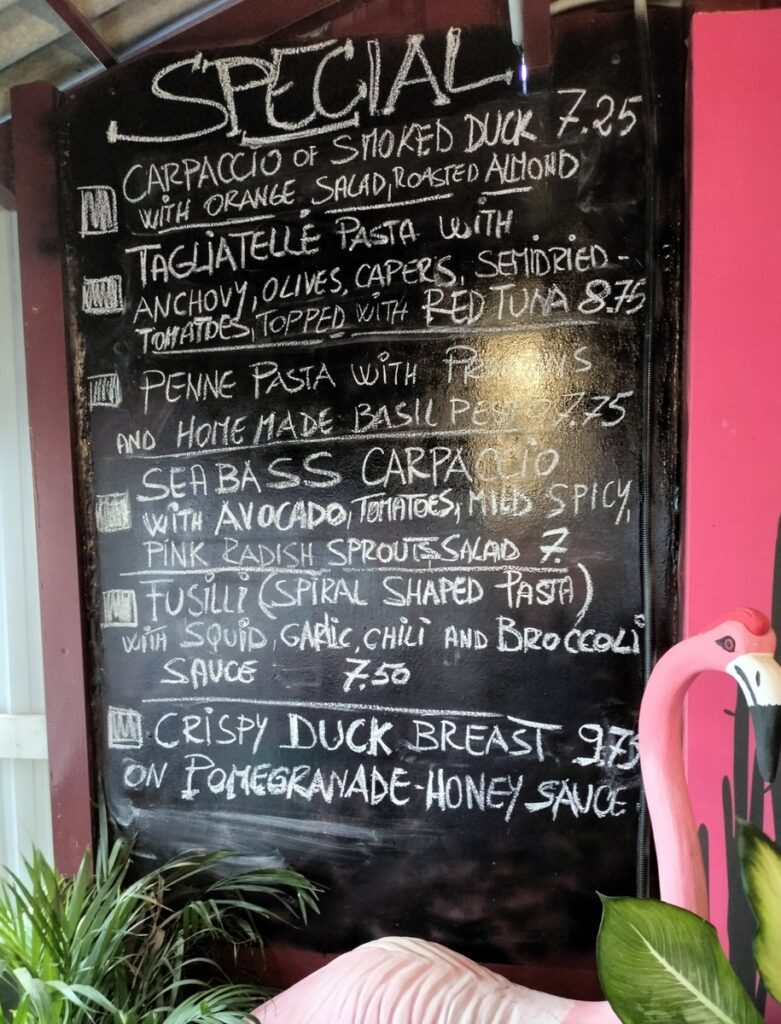 SPECIAL
CARPACCIO OF SMOKED DUCK 7.25
WITH ORANGE SALAD, ROASTED ALMOND
TAGLIATELLE PASTA WITH
ANCHOVY, OLIVES, CAPERS, SEMIDRIED-
TOMATOES, TOPPED WITH RED TUNA 8.75
PENNE PASTA WITH
AND HOME MADE BASIL PESTO 7.75
SEABASS CARPACCIO
WITH AVOCADO, TOMATOES, MILD SPICY,
PINK RADISH SPROUTS SALAD 7.
FUSILLI (SPIRAL SHAPED PASTA)
WITH SQUID, GARLIC, CHILI AND BROCCOLI
SAUCE 7.50
CRISPY DUCK BREAST 9.75
ON POMEGRANADE-HONEY SAUCE